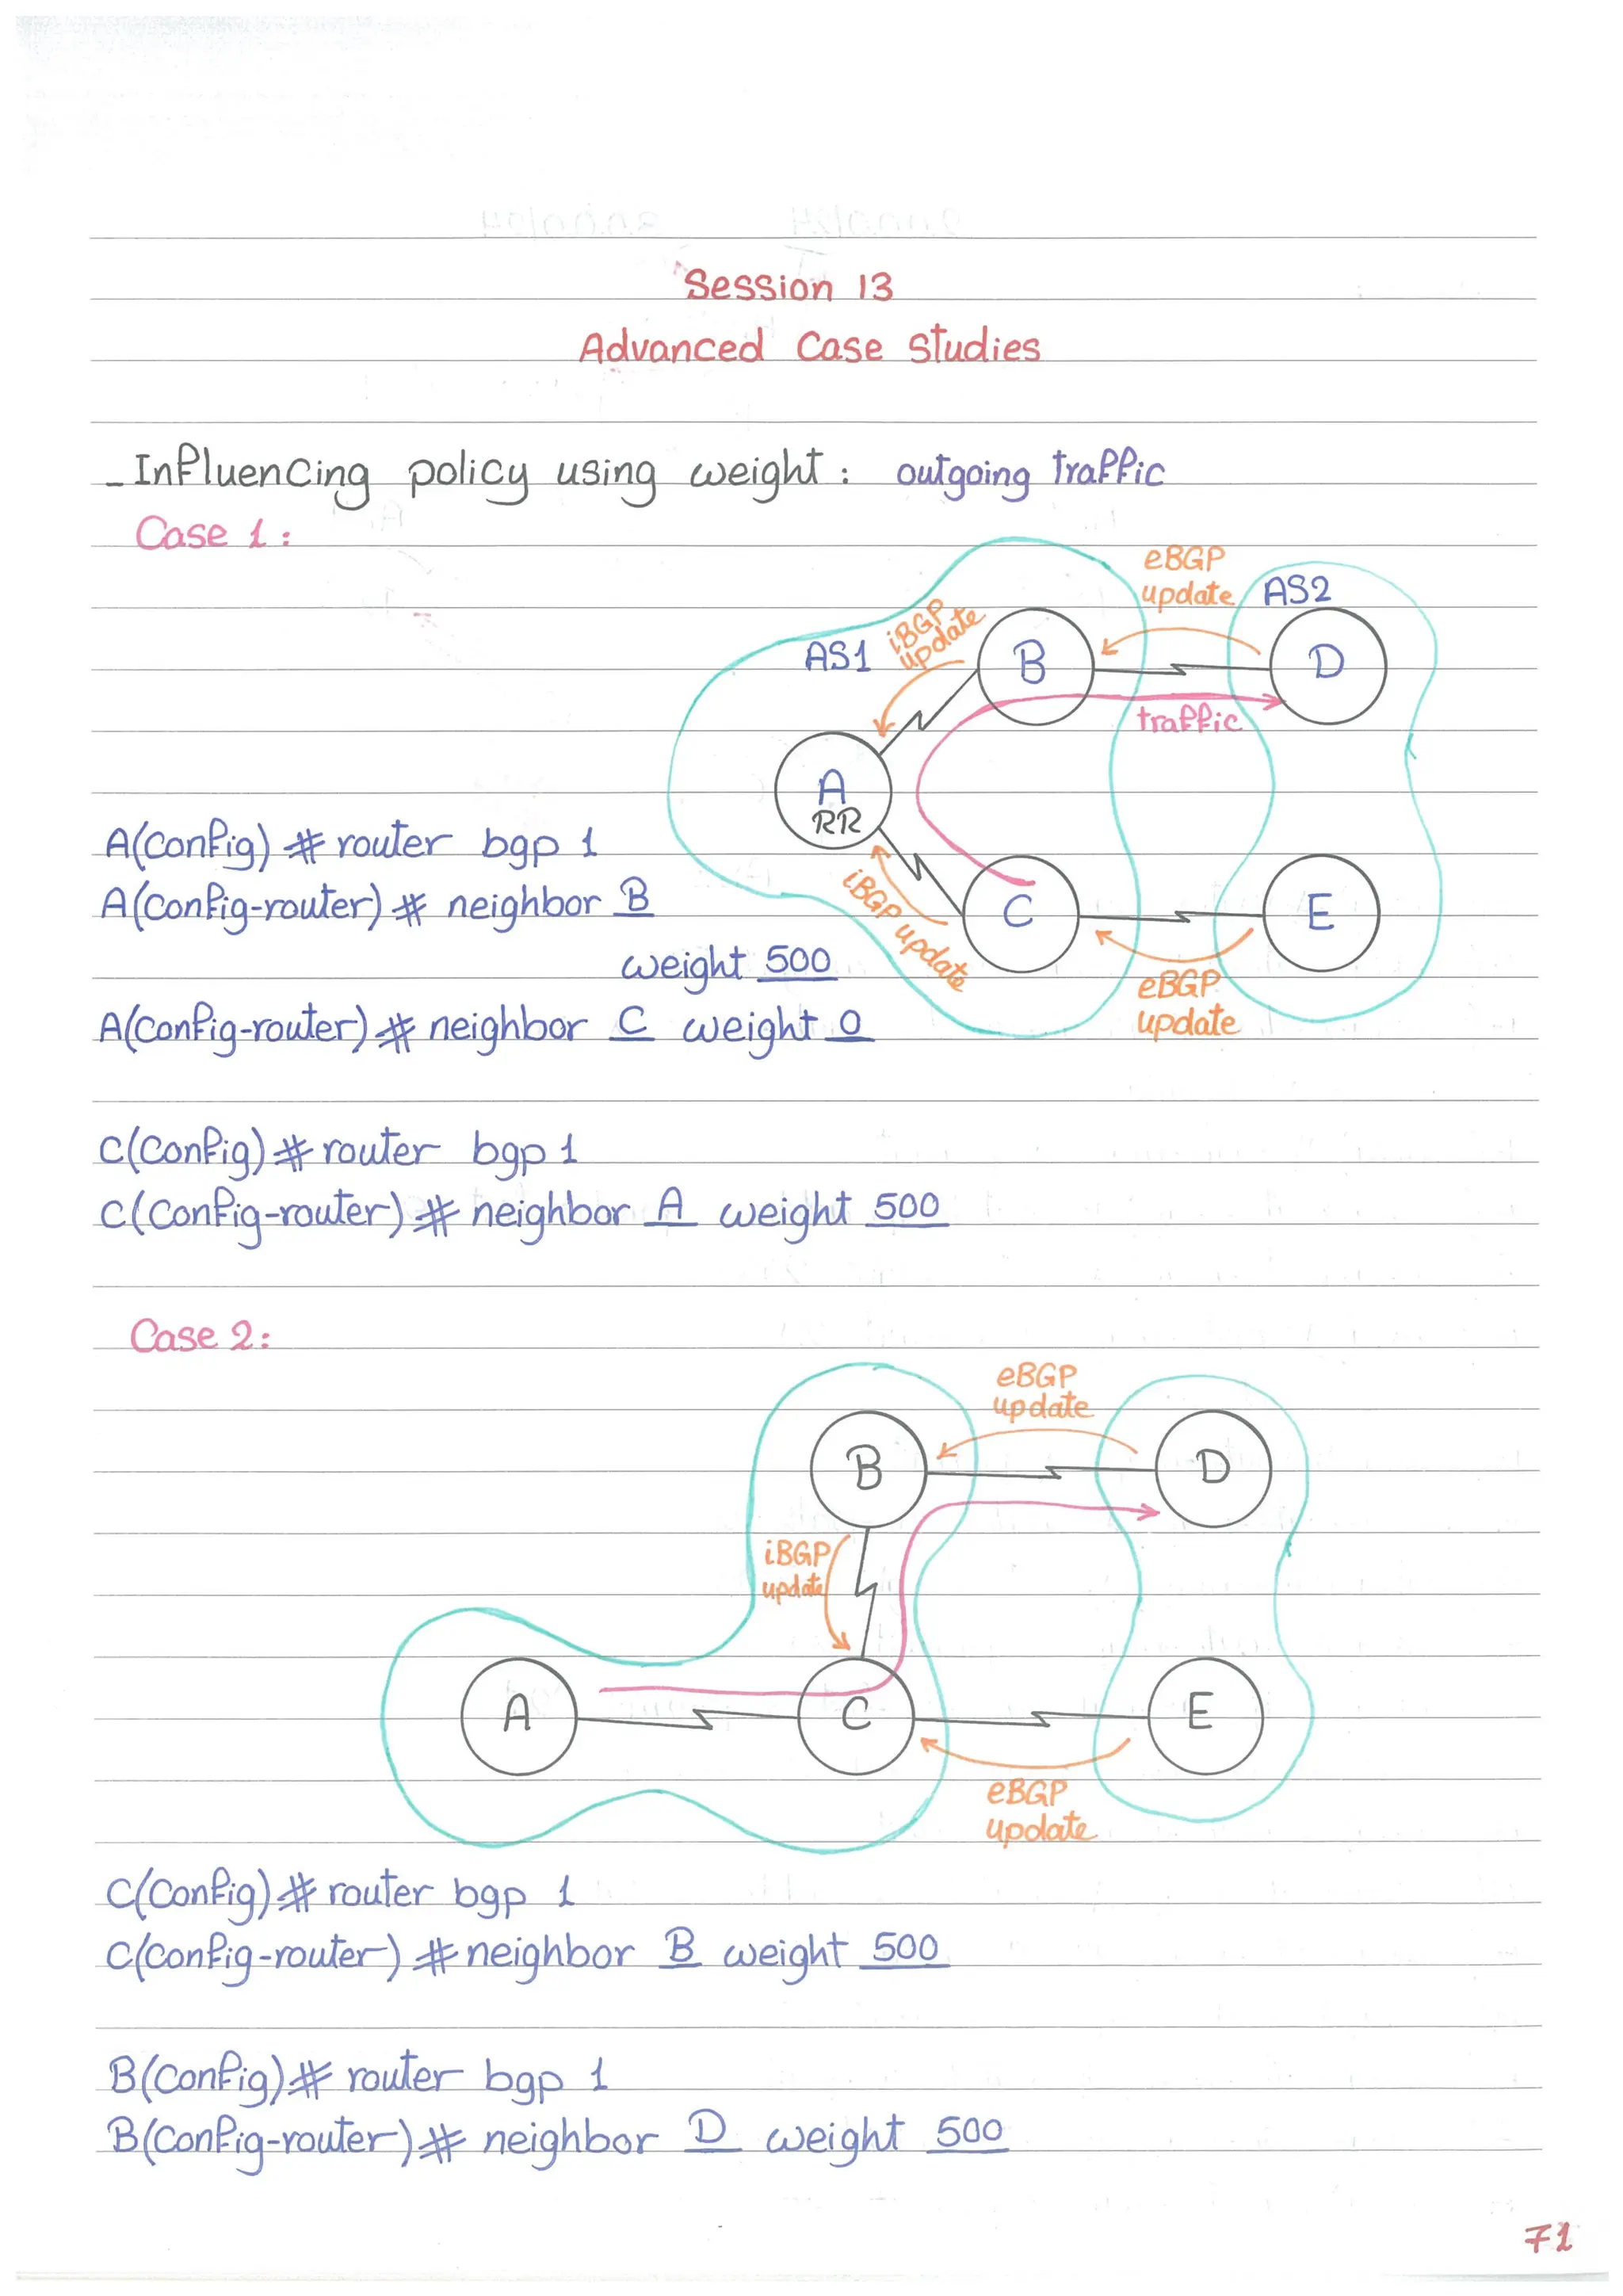 Session 13
Advanced Case Studies
_ Influencing policy using weight : outgoing traffic
Case 1 :
eBGP
update
AS2
iBGP
update
AS1
B
D
traffic
A
RR
iBGP update
C
E
eBGP
update
A(Config) # router bgp 1
A(Config-router) # neighbor B
weight 500
A(Config-router) # neighbor C weight 0
C(Config) # router bgp 1
C(Config-router) # neighbor A weight 500
Case 2 :
eBGP
update
B
D
iBGP
update
A
C
E
eBGP
update
C(Config) # router bgp 1
C(Config-router) # neighbor B weight 500
B(Config) # router bgp 1
B(Config-router) # neighbor D weight 500
71